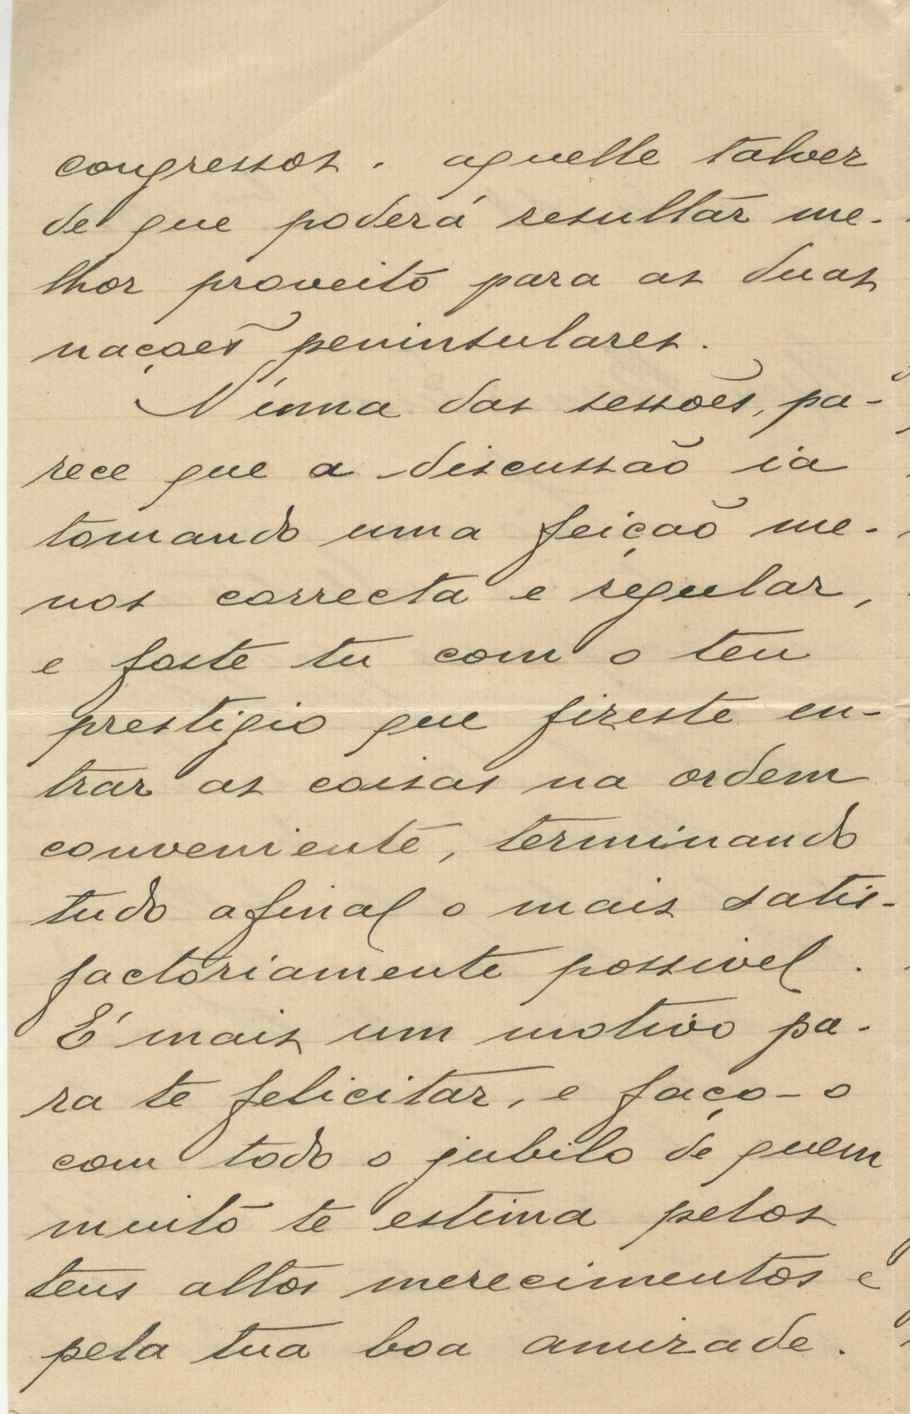 congressos. aquelle talvez
de que poderá resultar me-
lhor proveito para as duas
nações peninsulares.
N'uma das sessões, pa-
rece que a discussão ia
tomando uma feição me-
nos correcta e regular,
e foste tu com o teu
prestigio que fizeste en-
trar as coisas na ordem
conveniente, terminando
tudo afinal o mais satis-
factoriamente possivel.
É mais um motivo pa-
ra te felicitar, e faço-o
com todo o jubilo de quem
muito te estima pelos
teus altos merecimentos e
pela tua boa amizade.